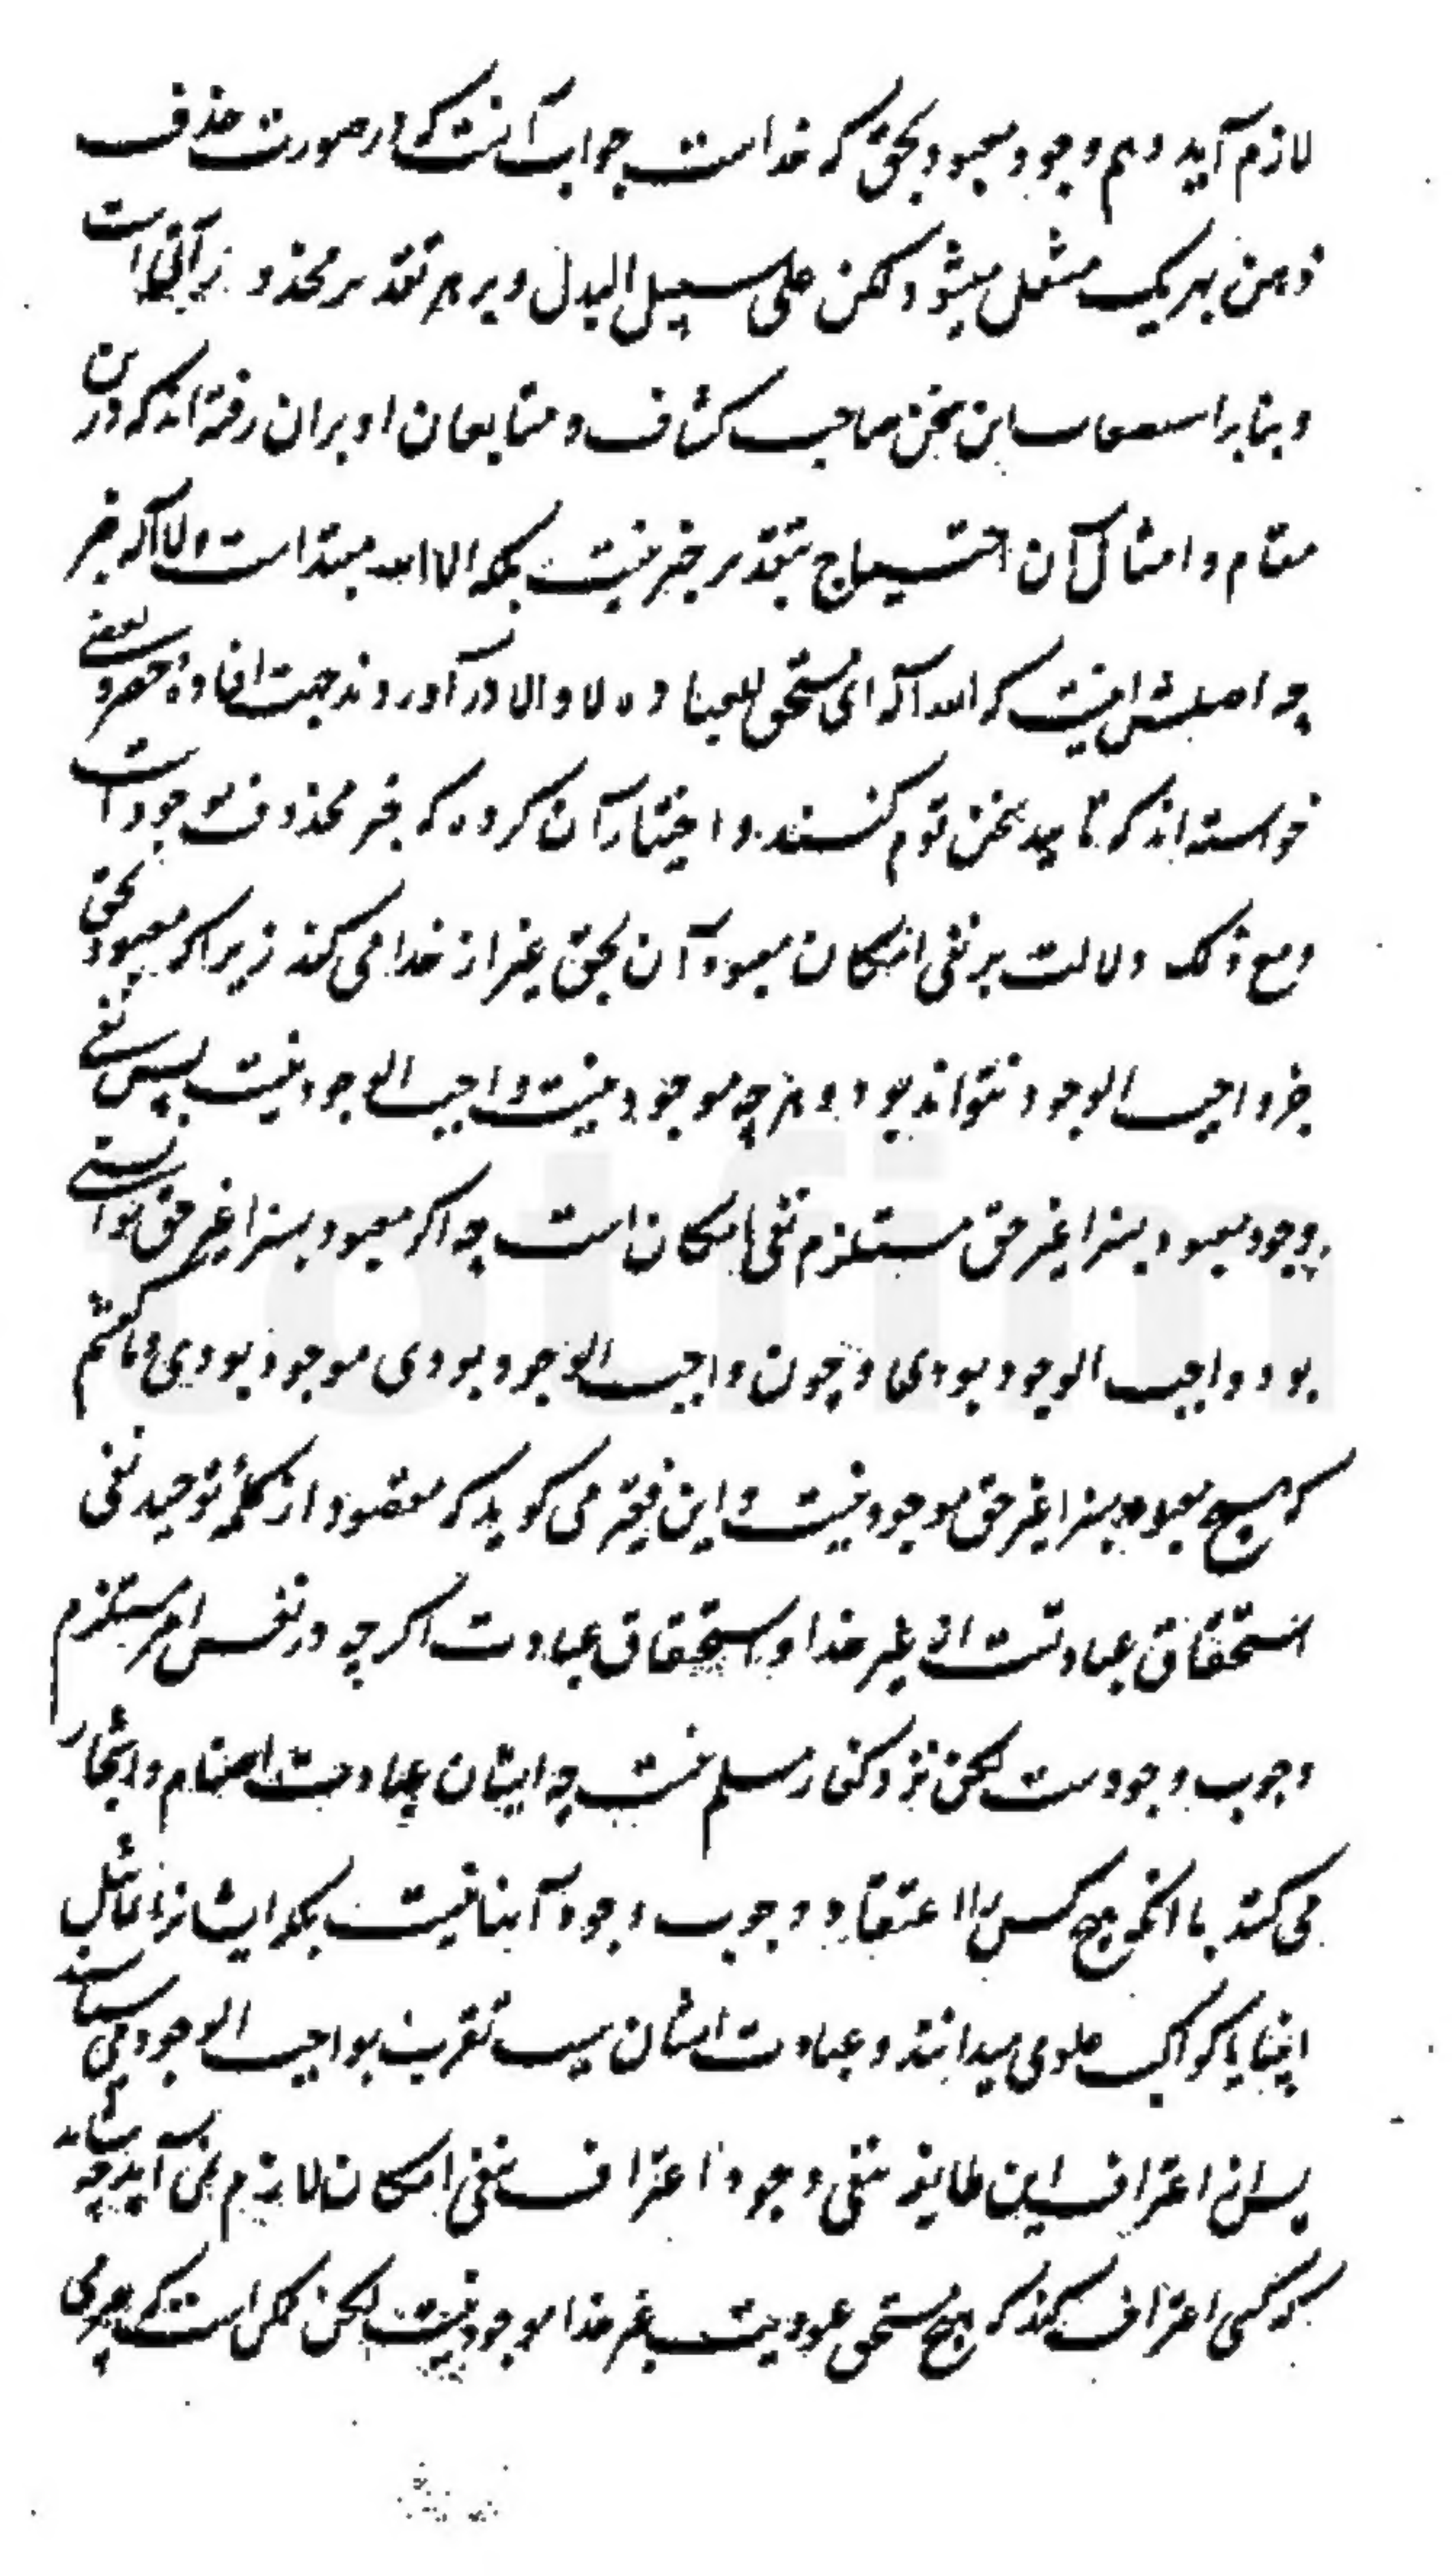 لازم آید و هم وجود معبود بحق که خداست جواب آنست که در صورت حذف
ذهن بهر یک منتقل میشود لکن علی سبیل البدل و بر هر تقدیر محذور باقی است
و بنابر استصعاب این سخن صاحب کشاف و متابعان او بران رفته اند که درین
مقام و امثال آن احتیاج بتقدیر خبر نیست بلکه الا الله مبتداست و لا اله خبر
چه اصلش اینست که الله اله ای مستحق للعباده لا و الا در آوردند جهت افاده حصر و بعضی
خواسته اند که تایید سخن قوم کنند و اختیار آن کرده که خبر محذوف موجود است
و مع ذلک دلالت بر نفی امکان معبود آن بحق غیر از خدا می کند زیرا که معبود بحق
جز واجب الوجود نتواند بود و هر چه موجود نیست واجب الوجود نیست پس نفی
وجود معبود بسزا غیر حق مستلزم نفی امکان است چه اگر معبود بسزا غیر حق توانستی
بود واجب الوجود بودی و چون واجب الوجود بودی موجود بودی و ما گفتیم
که هیچ معبود بسزا غیر حق موجود نیست و این فقیر می گوید که مقصود از کلمهٔ توحید نفی
استحقاق عبادتست از غیر خدا و استحقاق عبادت اگر چه در نفس امر مستلزم
وجوب وجودست لکن نزد کفار مسلم نیست چه ایشان عبادت اصنام و اشجار
می کنند با آنکه هیچ کس را اعتقاد وجوب وجود آنها نیست بلکه ایشانرا تماثیل
انبیا یا کواکب علوی میدانند و عبادت ایشان سبب تقرب بواجب الوجود می شناسند
پس از اعتراف این طایفه بنفی وجود اعتراف بنفی امکان لازم نمی آید چه شاید
که کسی اعتراف کند که هیچ مستحق عبودیت بغیر خدا موجود نیست لکن ممکن است که